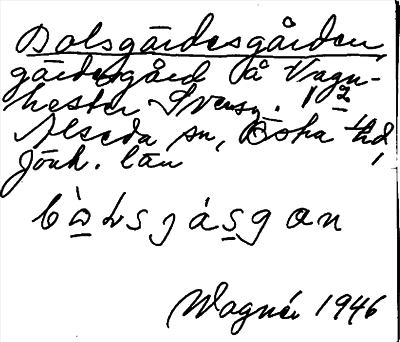 Bolsgärdesgården,
gärdesgård å Vagn-
hester Svensg. 1 2
Alseda sn, Östra hd,
Jönk. län
Wagnér 1946